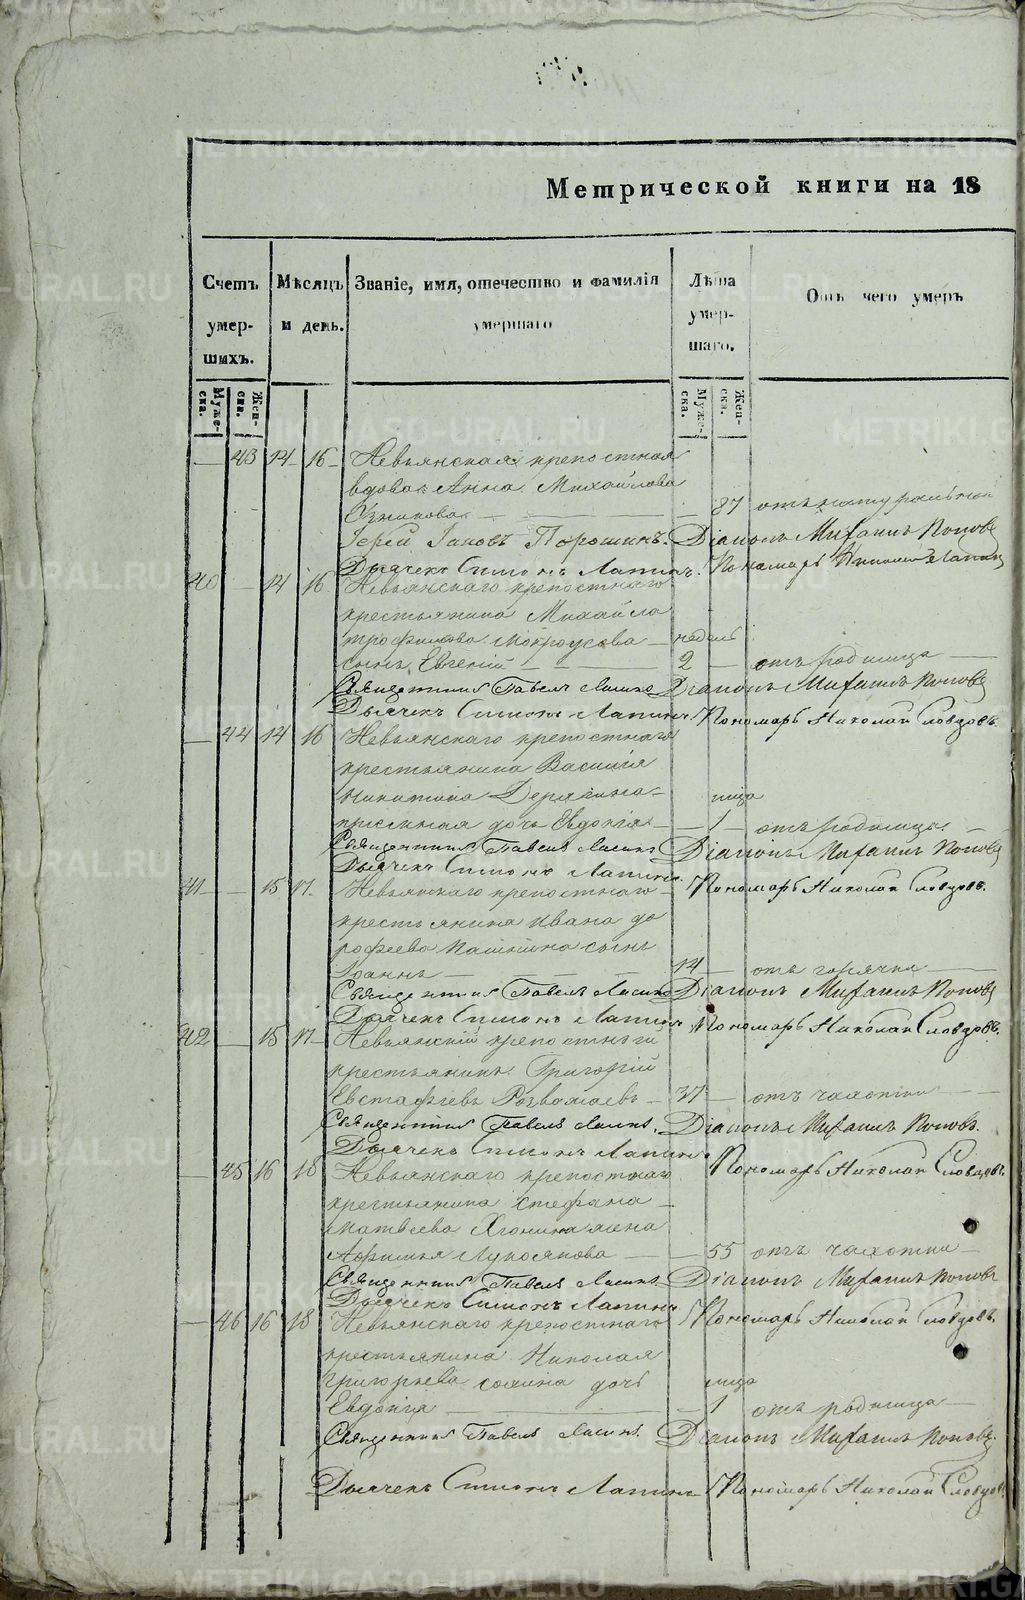 Метрической книги на 18
Счетъ умер-шихъ.
Мѣсяцъ и день.
Званіе, имя, отечество и фамилія умершаго
Лѣта умер-шаго.
Отъ чего умеръ
Муже-ска.
Жен-ска.
Муже-ска.
Жен-ска.
— 43 14 16 Невьянская крепостная
вдова Анна Михайлова
— 87 отъ натуральной
Іерей Іаковъ Порошинъ. Діаконъ Михаилъ Поповъ
Дьячекъ Симонъ Лапинъ. Пономарь
40 — 14 16 Невьянскаго крепостнаго
крестьянина Михайла
трофимова Мокроусова недель
сынъ Евгеній — 2 — отъ родимца
Священникъ Павелъ Діаконъ Михаилъ Поповъ
Дьячекъ Симонъ Лапинъ. Пономарь Николай Словцовъ.
— 44 14 16 Невьянскаго крепостнаго
крестьянина Василія
Никитина
дочь Евдокія — 1 — отъ родимца.
Священникъ Павелъ Діаконъ Михаилъ Поповъ
Дьячекъ Симонъ Лапинъ. Пономарь Николай Словцовъ.
41 — 15 17 Невьянскаго крепостнаго
крестьянина Ивана до
рофеева сынъ
Іоаннъ — 14 — отъ горячки
Священникъ Павелъ Діаконъ Михаилъ Поповъ
Дьячекъ Симонъ Лапинъ. Пономарь Николай Словцовъ.
42 — 15 17 Невьянскій крепостный
крестьянинъ Григорій
Евстафьевъ — 37 — отъ чахотки
Священникъ Павелъ Діаконъ Михаилъ Поповъ.
Дьячекъ Симонъ Лапинъ. Пономарь Николай Словцовъ.
— 45 16 18 Невьянскаго крепостнаго
крестьянина Стефана
Матвеева жена
Афимья Лукоянова — 55 отъ чахотки
Священникъ Павелъ Діаконъ Михаилъ Поповъ
Дьячекъ Симонъ Лапинъ Пономарь Николай Словцовъ.
— 46 16 18 Невьянскаго крепостнаго
крестьянина Николая
Григорьева дочь
Евдокія — 1 отъ родимца
Священникъ Павелъ Діаконъ Михаилъ Поповъ.
Дьячекъ Симонъ Лапинъ Пономарь Николай Словцовъ.
METRIKI.GASO-URAL.RU